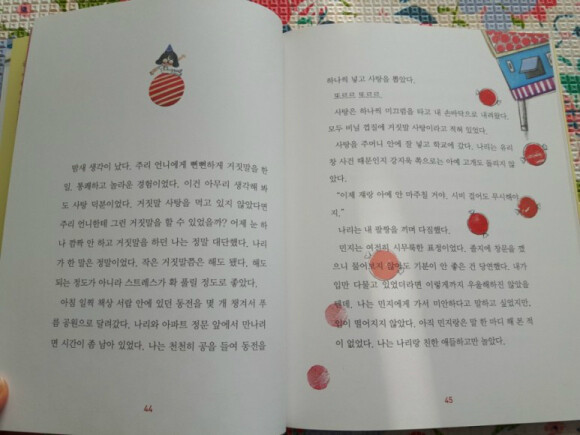 밤새 생각이 났다. 주리 언니에게 뻔뻔하게 거짓말을 한
일. 통쾌하고 놀라운 경험이었다. 이건 아무리 생각해 봐
도 사탕 덕분이었다. 거짓말 사탕을 먹고 있지 않았다면
주리 언니한테 그런 거짓말을 할 수 있었을까? 어제 눈 하
나 깜짝 안 하고 거짓말을 하던 나는 정말 대단했다. 나리
가 한 말은 정말이었다. 작은 거짓말쯤은 해도 됐다. 해도
되는 정도가 아니라 스트레스가 확 풀릴 정도로 좋았다.
아침 일찍 책상 서랍 안에 있던 동전을 몇 개 챙겨서 푸
름 공원으로 달려갔다. 나리와 아파트 정문 앞에서 만나려
면 시간이 좀 남아 있었다. 나는 천천히 공을 들여 동전을
44
하나씩 넣고 사탕을 뽑았다.
또르르 또르르.
사탕은 하나씩 미끄럼을 타고 내 손바닥으로 내려왔다.
모두 비닐 껍질에 거짓말 사탕이라고 적혀 있었다.
사탕을 주머니 안에 잘 넣고 학교에 갔다. 나리는 유리
창 사건 때문인지 강지욱 쪽으로는 아예 고개도 돌리지 않
았다.
"이제 쟤랑 아예 안 마주칠 거야. 시비 걸어도 무시해야
지."
나리는 내 팔짱을 끼며 다짐했다.
민지는 여전히 시무룩한 표정이었다. 졸지에 창문을 깼
으니 물어보지 않아도 기분이 안 좋은 건 당연했다. 내가
입만 다물고 있었더라면 이렇게까지 우울해하진 않았을
텐데. 나는 민지에게 가서 미안하다고 말하고 싶었지만,
입이 떨어지지 않았다. 아직 민지랑은 말 한 마디 해 본 적
이 없었다. 나는 나리랑 친한 애들하고만 놀았다.
45